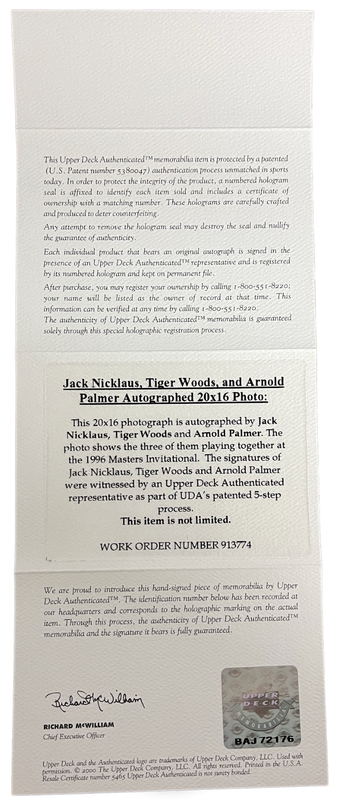 This Upper Deck Authenticated™ memorabilia item is protected by a patented
(U.S. Patent number 5380047) authentication process unmatched in sports
today. In order to protect the integrity of the product, a numbered hologram
seal is affixed to identify each item sold and includes a certificate of
ownership with a matching number. These holograms are carefully crafted
and produced to deter counterfeiting.
Any attempt to remove the hologram seal may destroy the seal and nullify
the guarantee of authenticity.
Each individual product that bears an original autograph is signed in the
presence of an Upper Deck Authenticated™ representative and is registered
by its numbered hologram and kept on permanent file.
After purchase, you may register your ownership by calling 1-800-551-8220;
your name will be listed as the owner of record at that time. This
information can be verified at any time by calling 1-800-551-8220.
The authenticity of Upper Deck Authenticated™ memorabilia is guaranteed
solely through this special holographic registration process.
Jack Nicklaus, Tiger Woods, and Arnold
Palmer Autographed 20x16 Photo:
This 20x16 photograph is autographed by Jack
Nicklaus, Tiger Woods and Arnold Palmer. The
photo shows the three of them playing together at
the 1996 Masters Invitational. The signatures of
Jack Nicklaus, Tiger Woods and Arnold Palmer
were witnessed by an Upper Deck Authenticated
representative as part of UDA's patented 5-step
process.
This item is not limited.
WORK ORDER NUMBER 913774
We are proud to introduce this hand-signed piece of memorabilia by Upper
Deck Authenticated™. The identification number below has been recorded at
our headquarters and corresponds to the holographic marking on the actual
item. Through this process, the authenticity of Upper Deck Authenticated™
memorabilia and the signature it bears is fully guaranteed.
Richard McWilliam
RICHARD McWILLIAM
Chief Executive Officer
UPPER
DECK
AUTHENTICATED
BAJ 72176
Upper Deck and the Authenticated logo are trademarks of Upper Deck Company, LLC. Used with
permission. © 2000 The Upper Deck Company, LLC. All rights reserved. Printed in the U.S.A.
Resale Certificate number 5465 Upper Deck Authenticated is not surety bonded.